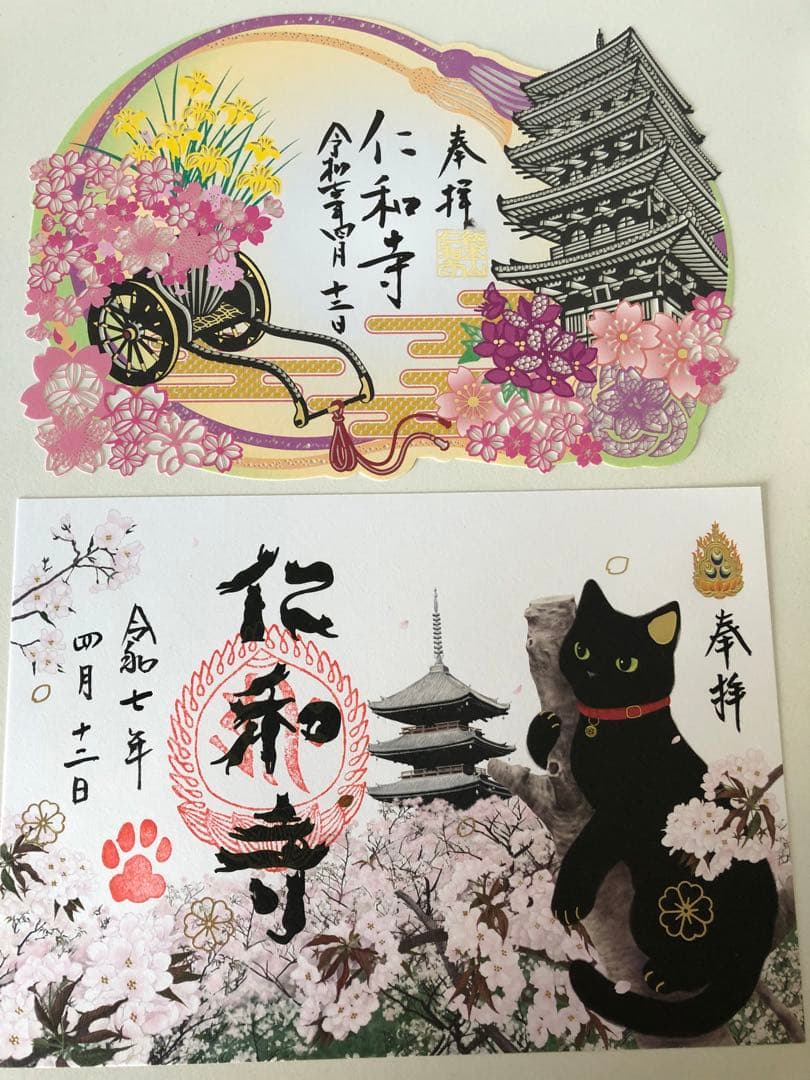 奉拝
仁和寺
令和七年四月十二日
奉拝
仁和寺
令和七年
四月十二日